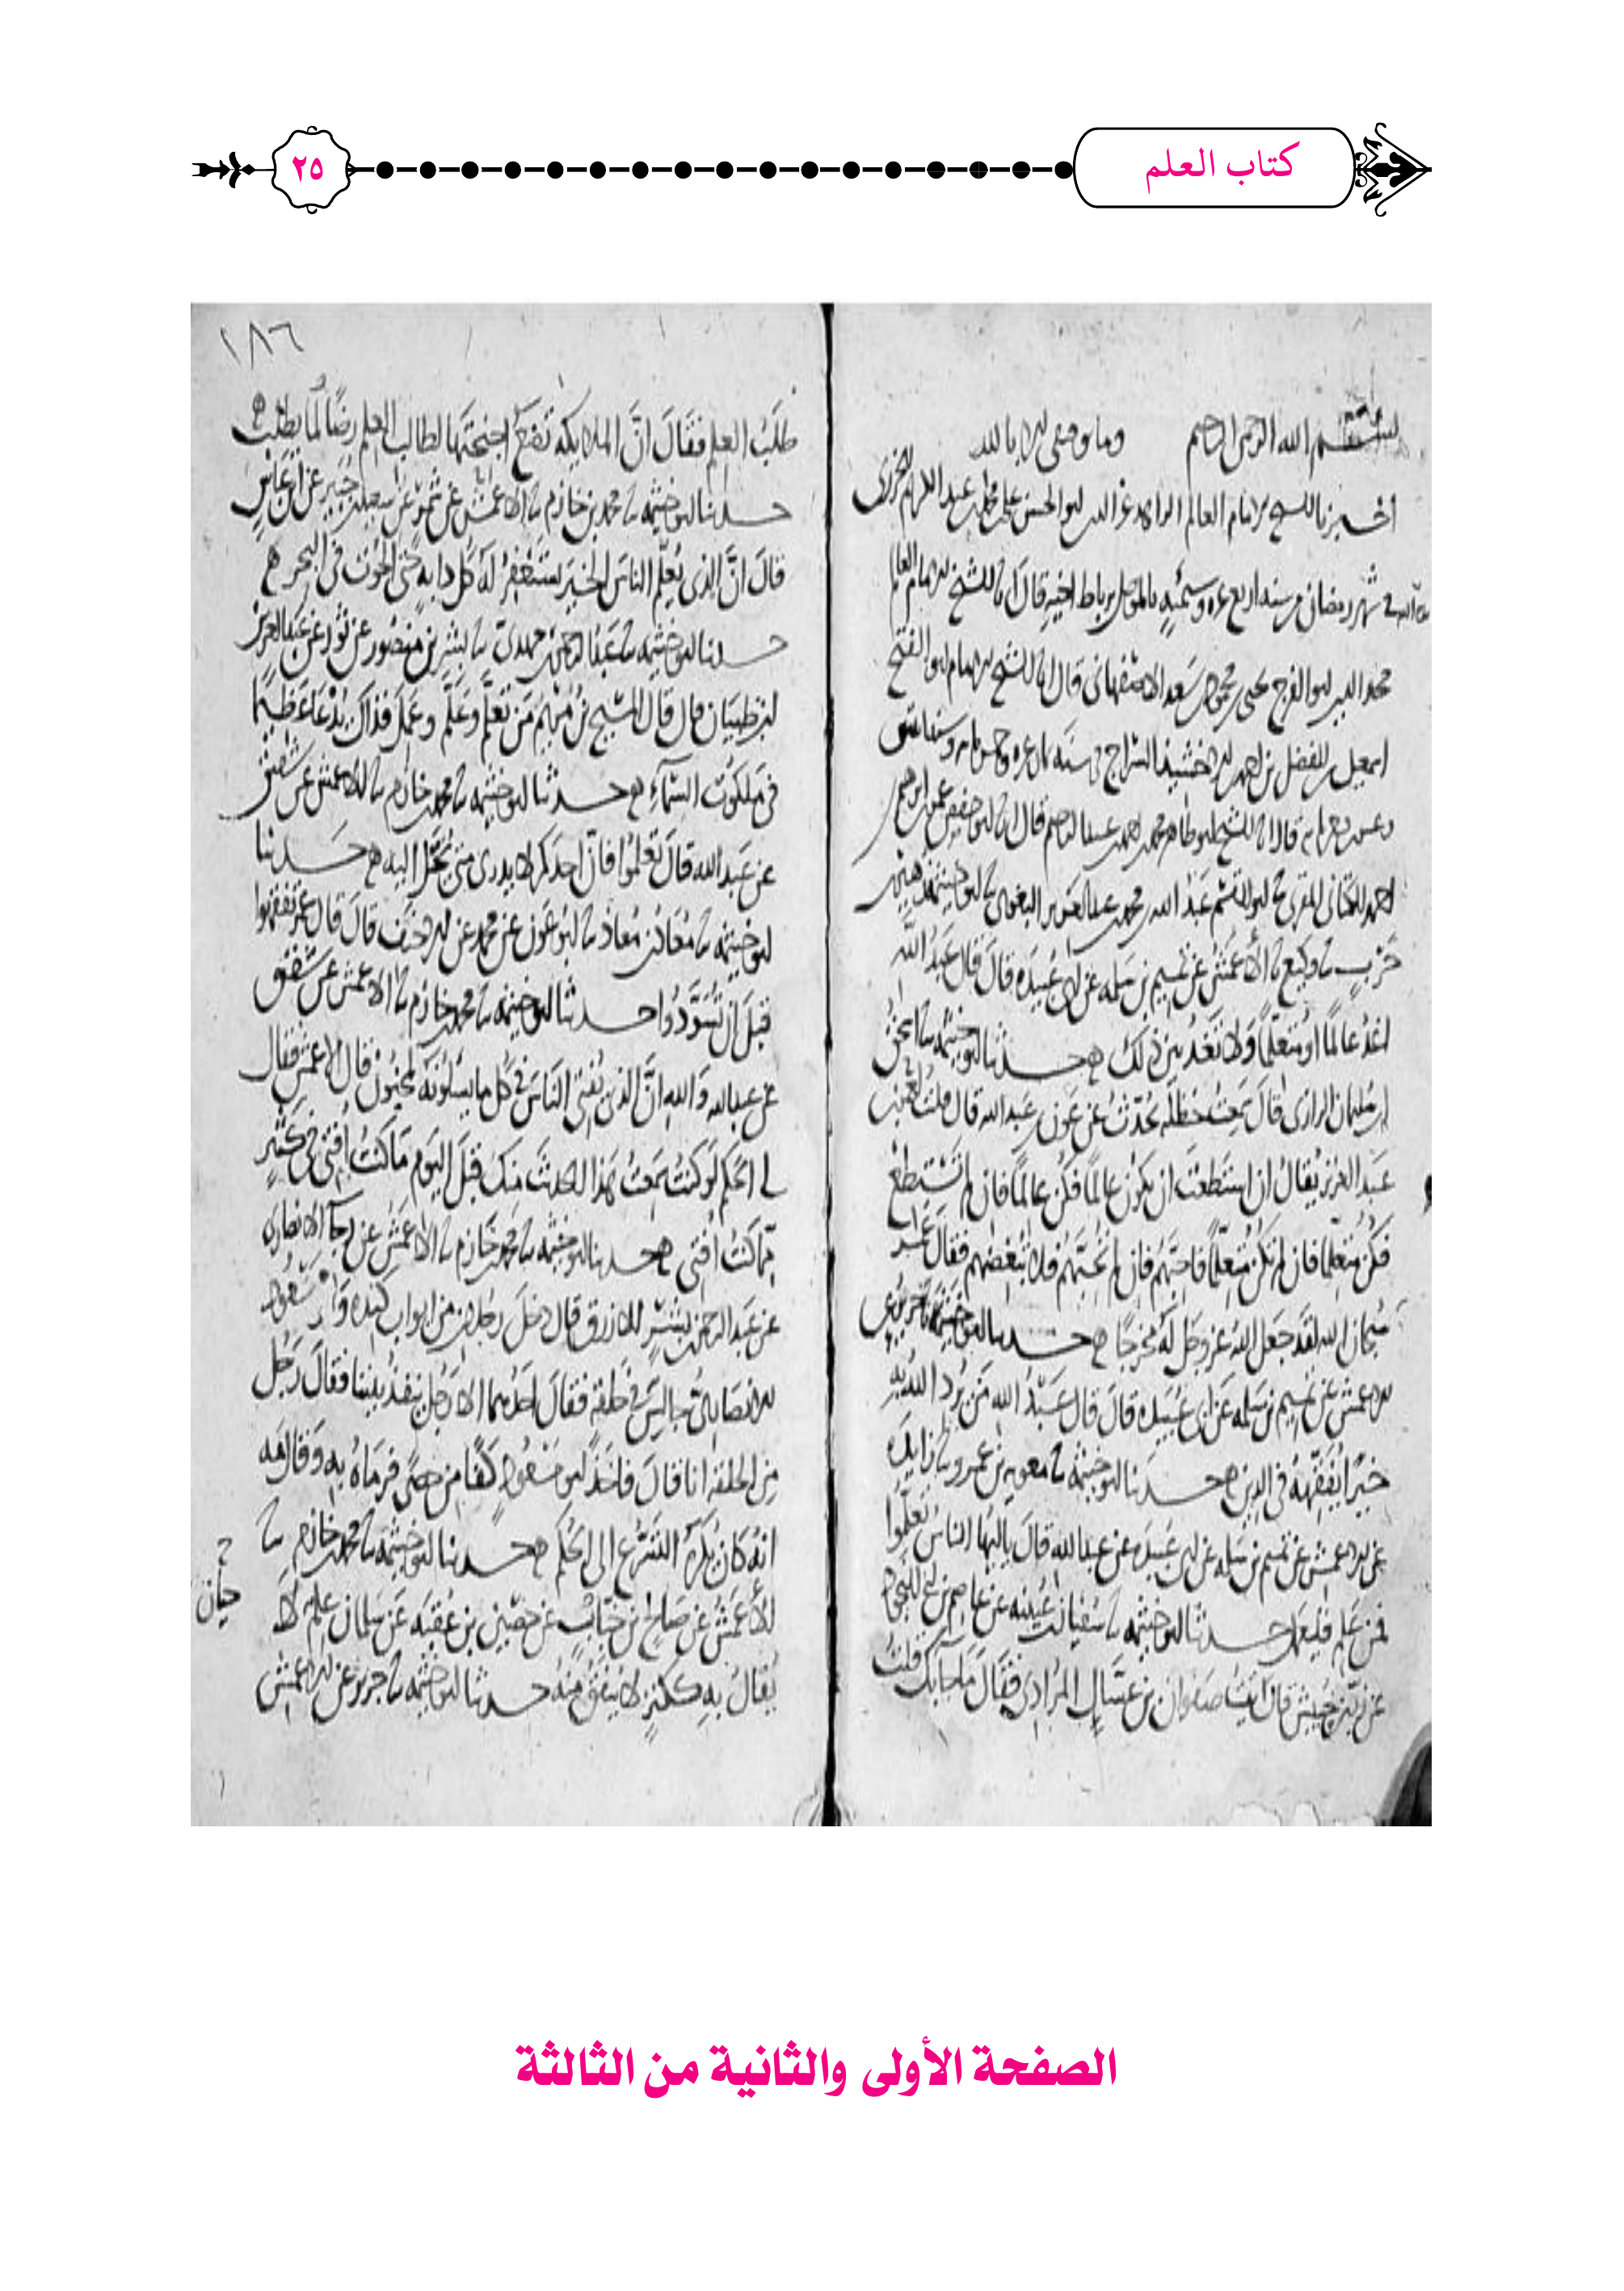 كتاب العلم
٢٥
بسم الله الرحمن الرحيم وما توفيقي الا بالله
الشيخ الامام العالم الزاهد عز الدين ابو الحسن علي بن محمد بن عبد الكريم الجزري
في شهر رمضان من سنة اربع عشرة وستمئة بالموصل برباط اخيه قال انا الشيخ الامام العالم
ابو الفرج يحيى بن محمود بن سعد الاصفهاني قال انا الشيخ الامام ابو الفتح
اسمعيل بن الفضل بن احمد بن الاخشيد السراج في سنة
قالا انا الشيخ ابو طاهر محمد بن احمد بن عبد الرحيم قال انا ابو حفص عمر بن ابراهيم
احمد الكتاني المقرئ نا ابو القسم عبد الله بن محمد بن عبد العزيز البغوي نا ابو خيثمة زهير بن
حرب نا وكيع نا الأعمش عن تميم بن سلمه عن ابي عبيدة قال قال عبد الله
اغد عالما او متعلما ولا تغد بين ذلك ه حدثنا ابو خيثمه نا اسحق
ابن سليمان الرازي قال سمعت حنظله يحدث عن عون بن عبد الله قال قلت لعمر بن
عبد العزيز يقال ان استطعت ان تكون عالما فكن عالما فان لم تستطع
فكن متعلما فان لم تكن متعلما فاحبهم فان لم تحبهم فلا تبغضهم فقال عمر
سبحان الله لقد جعل الله عز وجل له مخرجا ه حدثنا ابو خيثمة نا جرير عن
الاعمش عن تميم بن سلمه عن ابي عبيدة قال قال عبد الله من يرد الله به
خيرا يفقهه في الدين ه حدثنا ابو خيثمة نا معوية بن عمرو نا زايدة
عن الاعمش عن تميم بن سلمه عن ابي عبيدة عن عبد الله قال يا ايها الناس تعلموا
فمن علم فليعمل حدثنا ابو خيثمه نا سفيان بن عيينه عن عاصم بن ابي النجود
عن زر بن حبيش قال اتيت صفوان بن عسال المرادي فقال ما جا بك قلت
١٨٦
طلب العلم فقال ان الملايكة تضع اجنحتها لطالب العلم رضا لما يطلب ه
حدثنا ابو خيثمه نا محمد بن خازم نا الاعمش عن شمر عن سعيد بن جبير عن ابن عباس
قال ان الذي يعلم الناس الخير يستغفر له كل دابه حتى الحوت في البحر ه
حدثنا ابو خيثمه نا عبد الرحمن بن مهدي نا بشر بن منصور عن ثور عن عبد العزيز
ابن ظبيان قال قال المسيح بن مريم من تعلم وعلم وعمل فذاك يدعا عظيما
في ملكوت السماء ه حدثنا ابو خيثمه نا محمد بن خازم نا الاعمش عن شقيق
عن عبد الله قال تعلموا فان احدكم لا يدري متى يختل اليه ه حدثنا
ابو خيثمه نا معاذ بن معاذ نا ابن عون عن محمد عن الاحنف قال قال عمر تفقهوا
قبل ان تسودوا حدثنا ابو خيثمه نا محمد بن خازم نا الاعمش عن شقيق
عن عبد الله والله ان الذي يفتي الناس في كل ما يسلونه لمجنون قال الاعمش فقال
لي الحكم لو كنت سمعت بهذا الحديث منك قبل اليوم ما كنت افتي في كثير
مما كنت افتي ه حدثنا ابو خيثمه نا محمد بن خازم نا الاعمش عن رجا الانصاري
عن عبد الرحمن بن بشر الازرق قال دخل رجلان من ابواب كنده وابو مسعود
الانصاري جالس في حلقة فقال احدهما الا رجل ينفذ بيننا فقال رجل
من الحلقه انا قال فاخذ ابو مسعود كفا من حصى فرماه به وقال مه
انه كان يكره التسرع الى الحكم ه حدثنا ابو خيثمه نا محمد بن خازم نا
الأعمش عن صالح بن خباب عن حصين بن عقبه عن سلمان علم لا
يقال به ككنز لا ينفق منه حدثنا ابو خيثمه نا جرير عن الاعمش
حيان
الصفحة الأولى والثانية من الثالثة